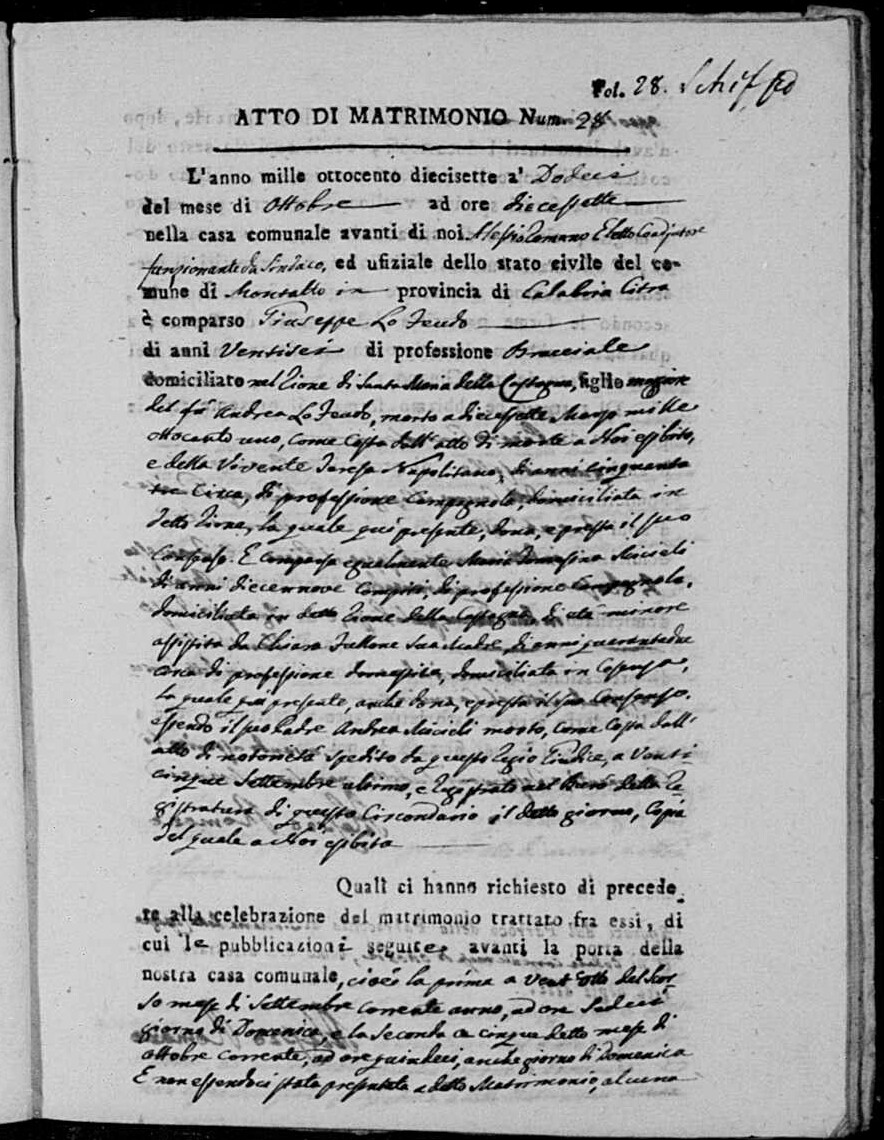 Fol. 28.
ATTO DI MATRIMONIO Num. 28
L'anno mille ottocento diecisette a' Dodeci
del mese di Ottobre ad ore diecessette
nella casa comunale avanti di noi Alessio Romano Eletto
funzionante da Sindaco, ed ufiziale dello stato civile del co-
mune di Montalto in provincia di Calabria Citra
è comparso Giuseppe Lo Feudo
di anni Ventisei di professione Bracciale
domiciliato nel Rione di Santa Maria della Castagna, figlio maggiore
del fù Andrea Lo Feudo, morto a diecessette Marzo mille
ottocento uno, come costa dall'atto di morte a Noi esibito,
e della Vivente Teresa Napolitano, di anni cinquanta
tre Circa, di professione Campagnola, domiciliata in
detto Rione, la quale quì presente, dona, e presta il suo
Consenso. E comparsa egualmente Maria Tomasina Micieli
di anni diecennove compiti, di professione Campagnola,
domiciliata in detto Rione della Castagna, di età minore
assistita da Chiara Fullone Sua Madre, di anni quarantadue
circa di professione domestica, domiciliata in Cosenza,
la quale quì presente, anche dona, e presta il suo Consenso.
essendo il suo Padre Andrea Micieli morto, come Costa dall'
atto di notorietà spedito da questo Regio Giudice, a Venti
cinque Settembre ultimo, e Registrato nel Burò della Re
gistratura di questo Circondario il detto giorno, Copia
del quale a Noi esibita
Quali ci hanno richiesto di precede
re alla celebrazione del matrimonio trattato fra essi, di
cui le pubblicazioni seguite avanti la porta della
nostra casa comunale, cioè la prima a Vent'otto del Scor
so mese di Settembre corrente anno, ad ore Sedeci
giorno di Domenica, e la Seconda a cinque detto mese di
ottobre corrente, ad ore quindeci, anche giorno di Domenica
E non essendoci stata presentata a detto Matrimonio, alcuna